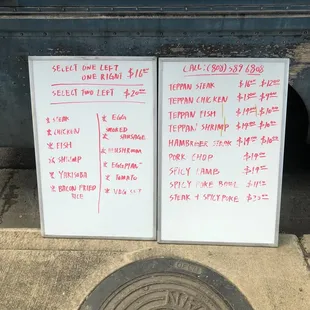 SELECT ONE LEFT
ONE RIGHT $16
SELECT TWO LEFT $20
STEAK
CHICKEN
FISH
SHRIMP
YAKISOBA
BACON FRIED
RICE
EGGS
SMOKED
SAUSAGE
MUSHROOM
EGGPLANT
TOMATO
CALL: (808) 589 6808
TEPPAN STEAK $16
TEPPAN CHICKEN $13
TEPPAN FISH $19 $16
TEPPAN SHRIMP $19 $16
HAMBURGER STEAK $19
PORK CHOP $19
SPICY LAMB $19
SPICY POKE BOWL
STEAK + SPICY POKE